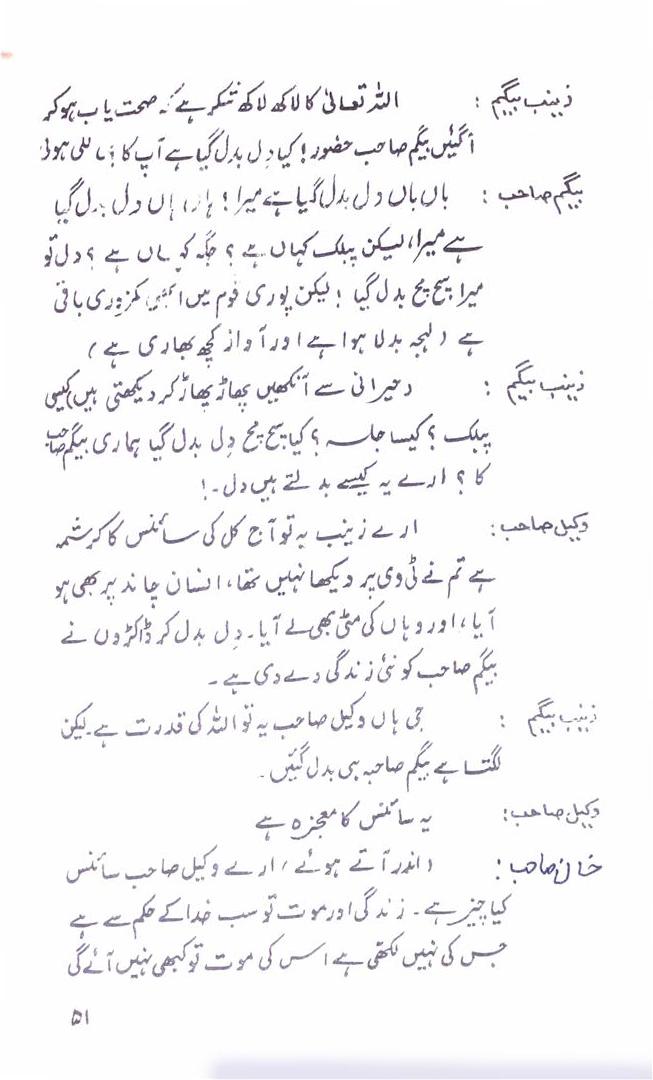 زینب بیگم : اللہ تعالیٰ کا لاکھ لاکھ شکر ہے کہ صحت یاب ہوکر
آگئیں بیگم صاحب حضور! کیا دل بدل گیا ہے آپ کا
بیگم صاحب : ہاں ہاں دل بدل گیا ہے میرا! ہاں ہاں دل بدل گیا
ہے میرا، لیکن پبلک کہاں ہے؟ جگہ کہاں ہے؟ دل تو
میرا سچ مچ بدل گیا! لیکن پوری قوم میں ابھی کمزوری باقی
ہے (لہجہ بدلا ہوا ہے اور آواز کچھ بھاری ہے)
زینب بیگم : (حیرانی سے آنکھیں پھاڑ پھاڑ کر دیکھتی ہیں) کیسی
پبلک؟ کیسا جلسہ؟ کیا سچ مچ دل بدل گیا ہماری بیگم صاحب
کا؟ ارے یہ کیسے بدلتے ہیں دل۔!
وکیل صاحب: ارے زینب یہ تو آج کل کی سائنس کا کرشمہ
ہے تم نے ٹی وی پر دیکھا نہیں تھا، انسان چاند پر بھی ہو
آیا، اور وہاں کی مٹی بھی لے آیا۔ دل بدل کر ڈاکٹروں نے
بیگم صاحب کو نئی زندگی دے دی ہے۔
زینب بیگم : جی ہاں وکیل صاحب یہ تو اللہ کی قدرت ہے۔ لیکن
لگتا ہے بیگم صاحبہ ہی بدل گئیں۔
وکیل صاحب: یہ سائنس کا معجزہ ہے
خان صاحب: (اندر آتے ہوئے) ارے وکیل صاحب سائنس
کیا چیز ہے۔ زندگی اور موت تو سب خدا کے حکم سے ہے
جس کی نہیں لکھی ہے اس کی موت تو کبھی نہیں آئے گی
۵۱